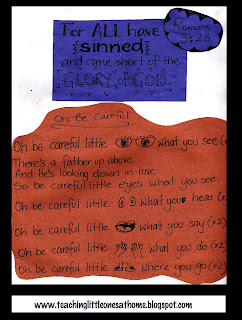 For ALL have
sinned
and come short of the
GLORY of GOD.
Romans
3:23
Oh Be Careful
Oh be careful little what you see (x2)
There's a father up above
And He's looking down in love
So be careful little eyes what you see.
Oh be careful little what you hear (x2)
Oh be careful little what you say (x2)
Oh be careful little what you do (x2)
Oh be careful little where you go (x2)
www.teachinglittleonesathome.blogspot.com